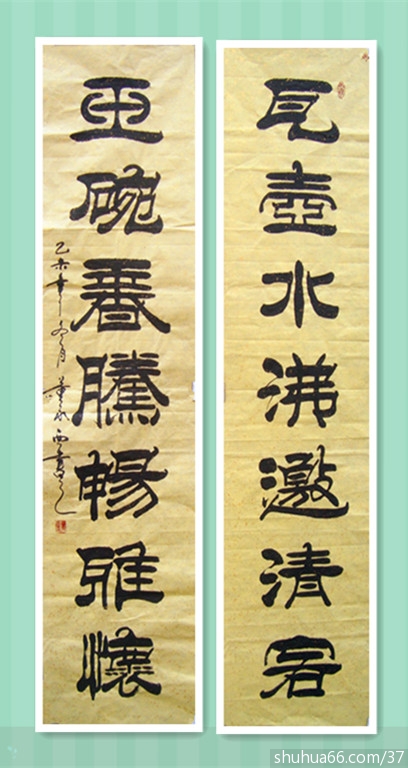 瓦壺水沸邀清客
玉碗香騰暢雅懷
乙未年冬月
shuhua66.com/37